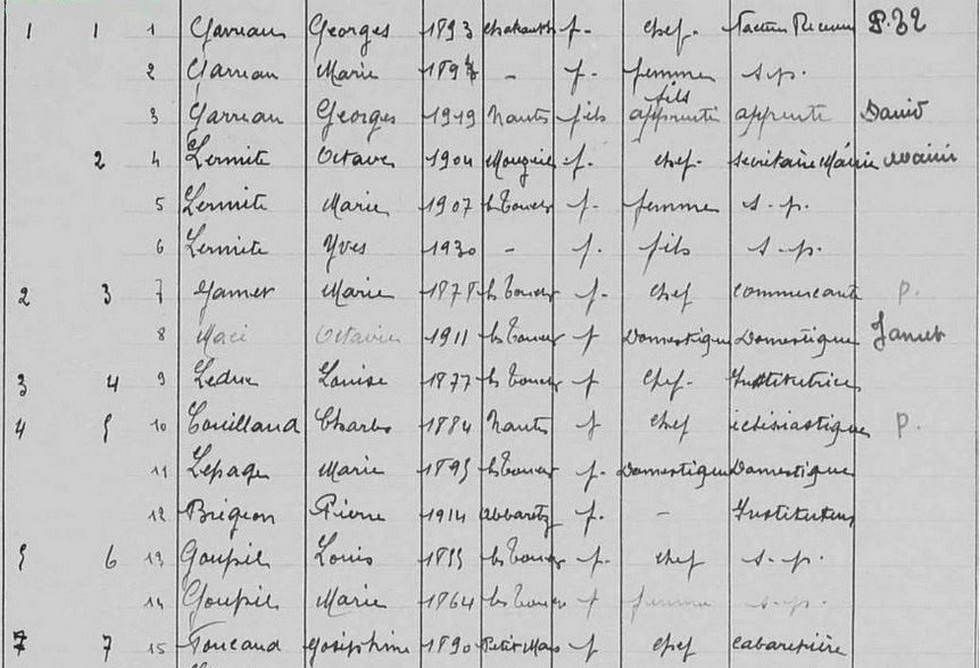 1 1 1 Garreau Georges 1893 f. chef. Facteur Receveur P.32
2 Garreau Marie 1897 - f. femme s.p.
3 Garreau Georges 1919 Nantes fils fils apprenti apprenti David
2 4 Lermite Octave 1904 f. chef. Secrétaire Mairie Mairie
5 Lermite Marie 1907 les Touches f. femme s.p.
6 Lermite Yves 1930 - f. fils s.p.
2 3 7 Marie 1878 les Touches f. chef commerçante P.
8 Octavie 1911 les Touches f Domestique Domestique
3 4 9 Leduc Louise 1877 les Touches f chef. Institutrice
4 5 10 Touillaud Charles 1884 Nantes f chef P.
11 Lepage Marie 1895 les Touches f. Domestique Domestique
12 Brégeon Pierre 1914 Abbaretz f. - Instituteur
5 6 13 Goupil Louis les Touches f. chef s.p.
14 Goupil Marie 1864 les Touches f femme s.p.
7 7 15 Foucaud Joséphine 1890 Petit Mars f chef cabaretière